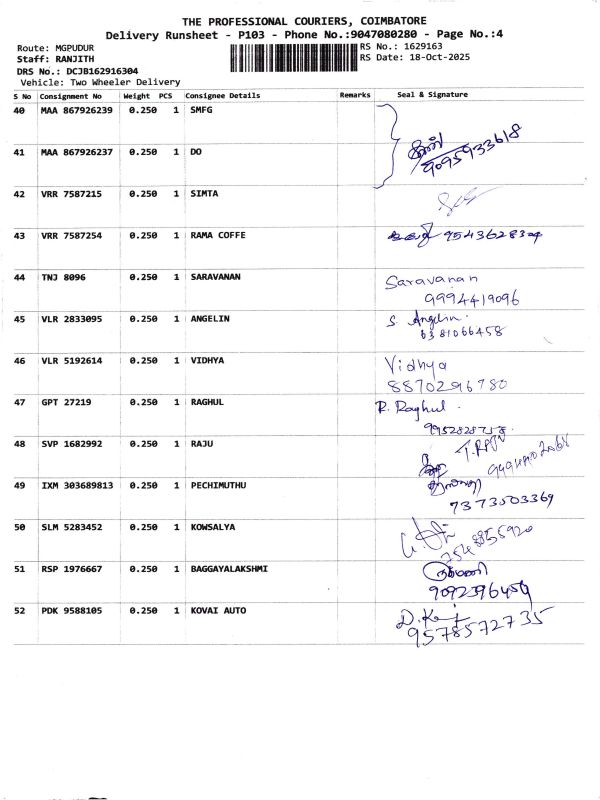 THE PROFESSIONAL COURIERS, COIMBATORE
Delivery Runsheet - P103 - Phone No.:9047080280 - Page No.:4
Route: MGPUDUR
RS No.: 1629163
Staff: RANJITH
RS Date: 18-Oct-2025
DRS No.: DCJB162916304
Vehicle: Two Wheeler Delivery
S No Consignment No Weight PCS Consignee Details Remarks Seal & Signature
40 MAA 867926239 0.250 1 SMFG
9095933618
41 MAA 867926237 0.250 1 DO
42 VRR 7587215 0.250 1 SIMTA
43 VRR 7587254 0.250 1 RAMA COFFE 9543628304
44 TNJ 8096 0.250 1 SARAVANAN Saravanan
9994419096
45 VLR 2833095 0.250 1 ANGELIN S Angelin.
6381066458
46 VLR 5192614 0.250 1 VIDHYA Vidhya
8870296780
47 GPT 27219 0.250 1 RAGHUL R. Raghul.
48 SVP 1682992 0.250 1 RAJU
49 IXM 303689813 0.250 1 PECHIMUTHU
7373503369
50 SLM 5283452 0.250 1 KOWSALYA
51 RSP 1976667 0.250 1 BAGGAYALAKSHMI
9092396459
52 PDK 9588105 0.250 1 KOVAI AUTO
9578572735